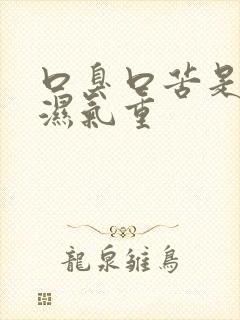 口臭口苦是
濕氣重
龍泉雛鳥